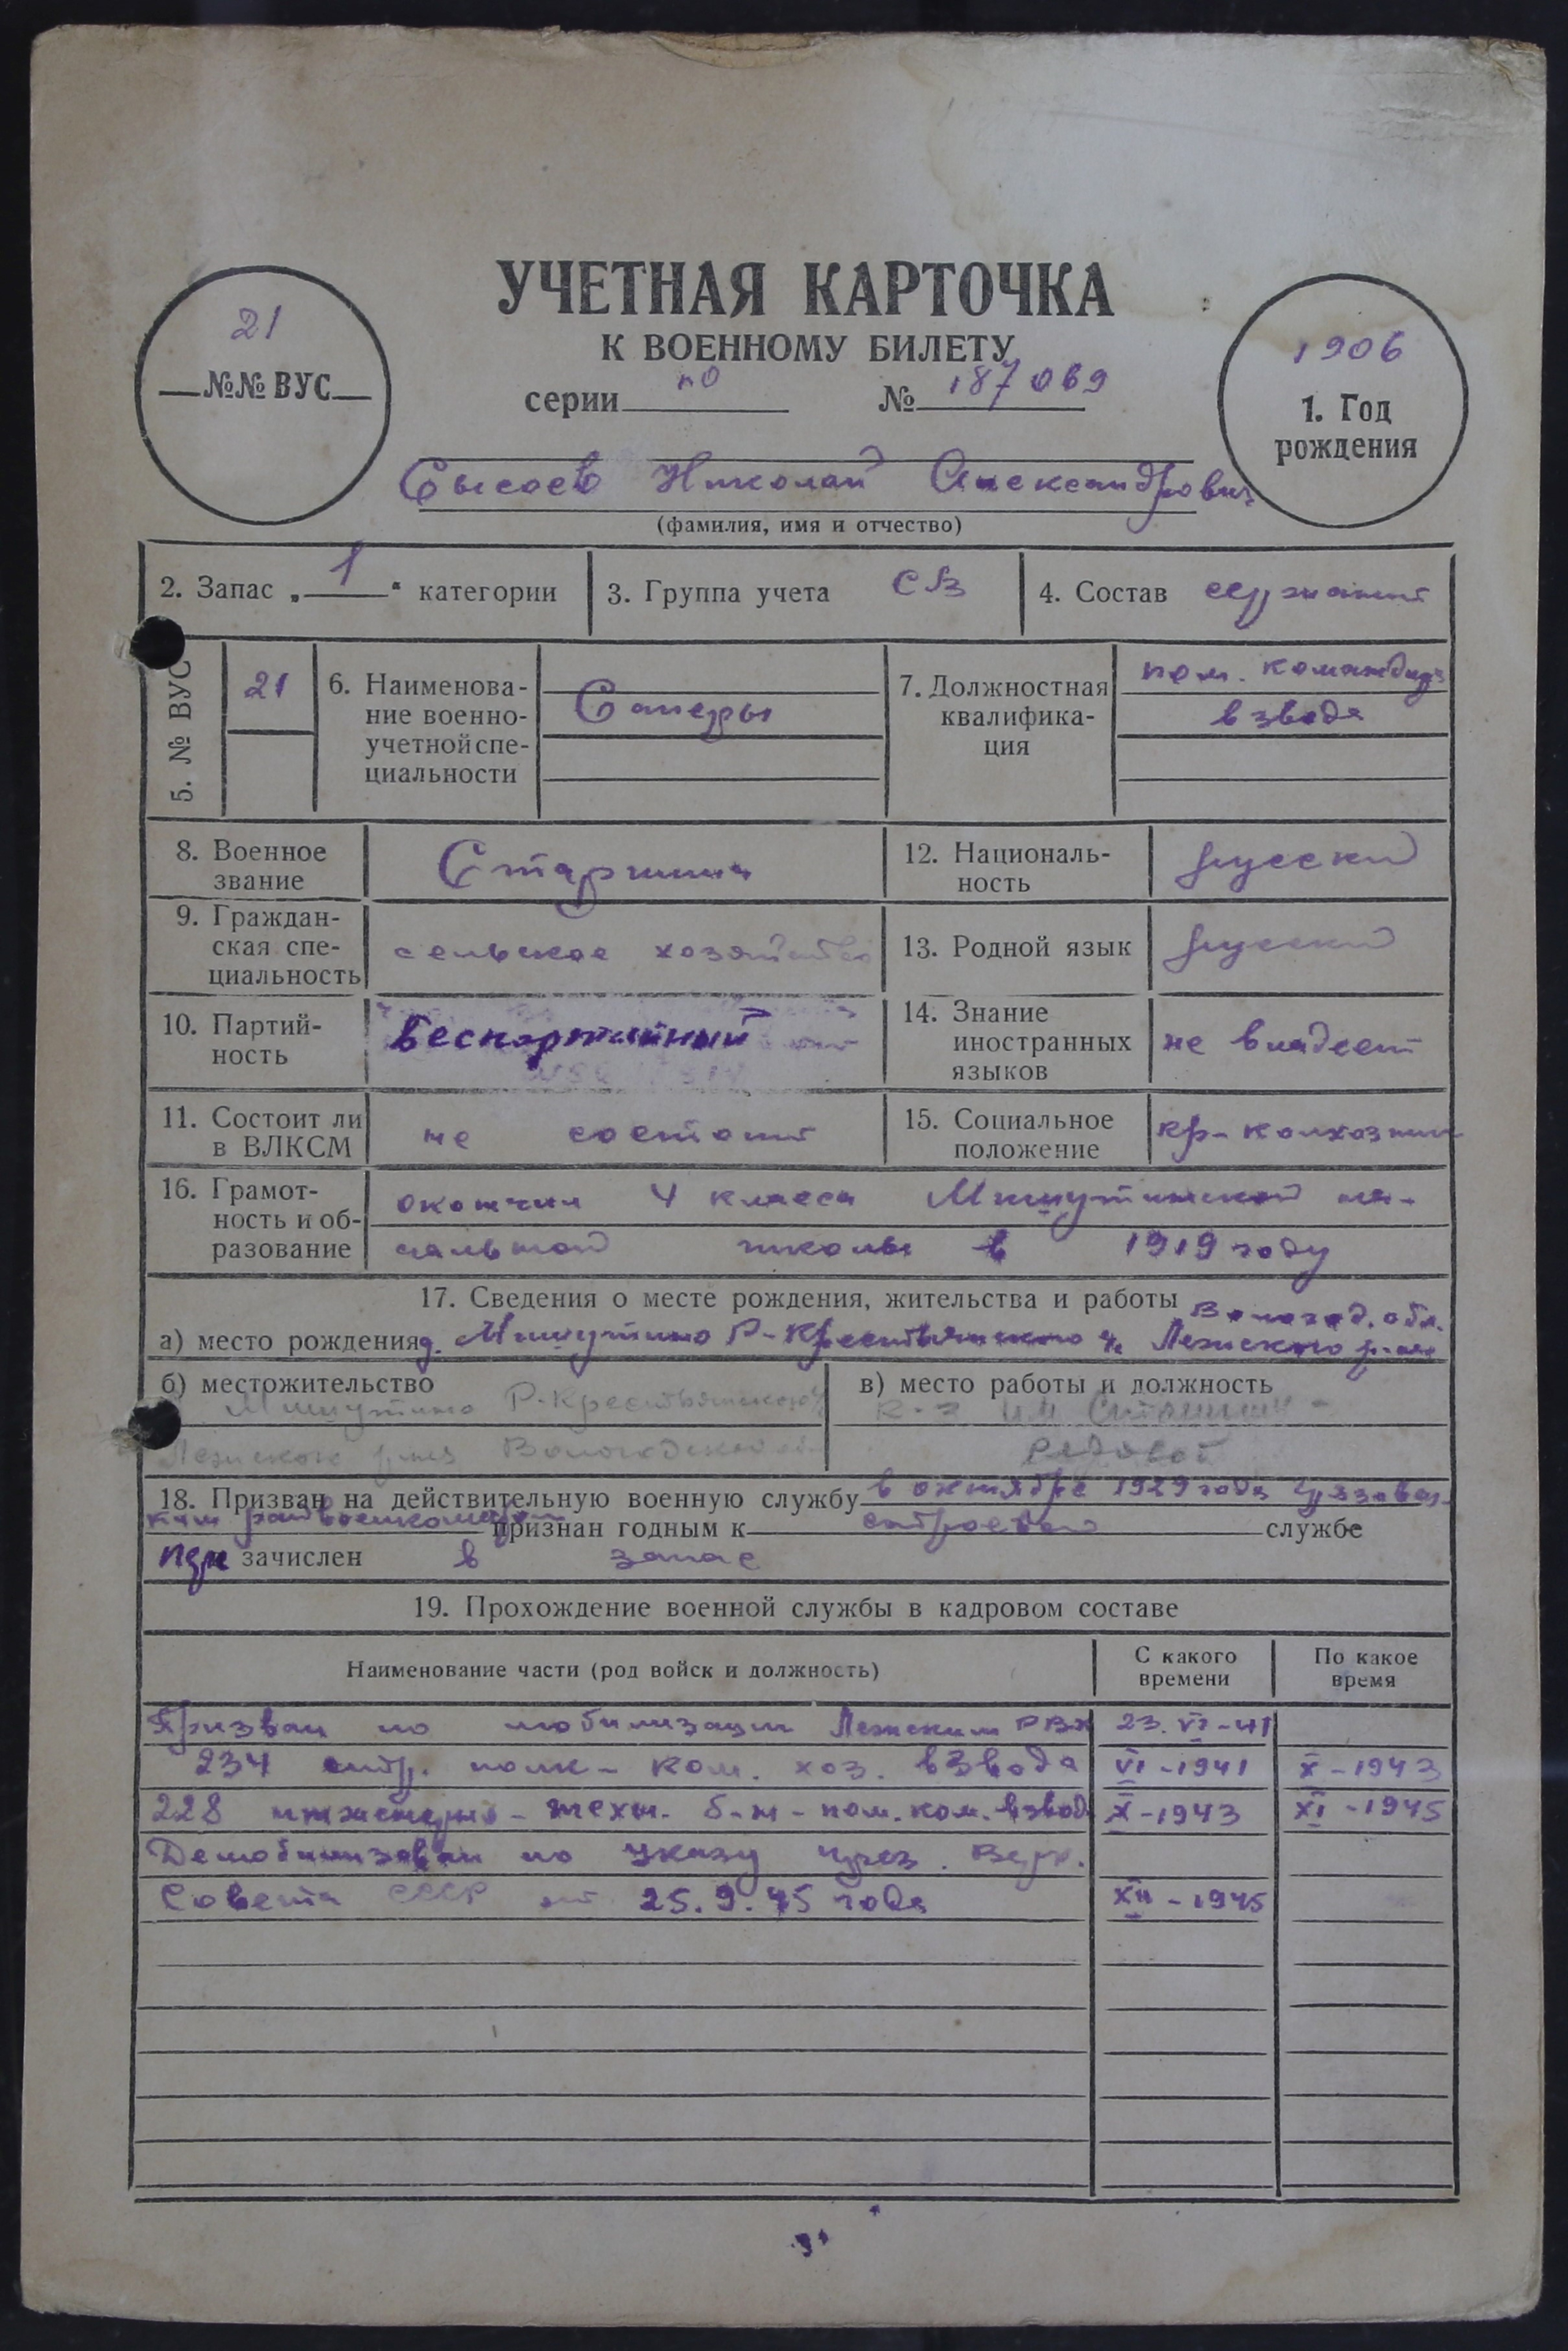 УЧЕТНАЯ КАРТОЧКА
К ВОЕННОМУ БИЛЕТУ
серии по № 187069
21
№№ ВУС
1906
1. Год
рождения
Сысоев Николай Александрович
(фамилия, имя и отчество)
2. Запас „1“ категории
3. Группа учета СВ
4. Состав сержант
5. № ВУС 21
6. Наименова-
ние военно-
учетной спе-
циальности
Саперы
7. Должностная
квалифика-
ция
пом. командир
взвода
8. Военное
звание
Старшина
12. Националь-
ность
русский
9. Граждан-
ская спе-
циальность
сельское хозяйство
13. Родной язык
русский
10. Партий-
ность
беспартийный
14. Знание
иностранных
языков
не владеет
11. Состоит ли
в ВЛКСМ
не состоит
15. Социальное
положение
кр-колхозник
16. Грамот-
ность и об-
разование
окончил 4 класса Мишутинской на-
чальной школы в 1919 году
17. Сведения о месте рождения, жительства и работы
Вологод. обл.
а) место рождения д. Мишутино Р-Крестьянского Лежского р-на
б) местожительство
Мишутино Р-Крестьянского
Лежского р-на Вологодской
в) место работы и должность
к-з им Сталина -
рядовой
18. Призван на действительную военную службу в октябре 1929 года Грязовец-
ким райвоенкоматом признан годным к строевой службе
при зачислен в запас
19. Прохождение военной службы в кадровом составе
Наименование части (род войск и должность)
С какого
времени
По какое
время
Призван по мобилизации Лежским РВК 23.VI-41
234 стр. полк - ком. хоз. взвода VI-1941 X-1943
228 инженерно-техн. б-н - пом. ком. взвод X-1943 XI-1945
Демобилизован по Указу През. Верх.
Совета СССР от 25.9.45 года XII-1945